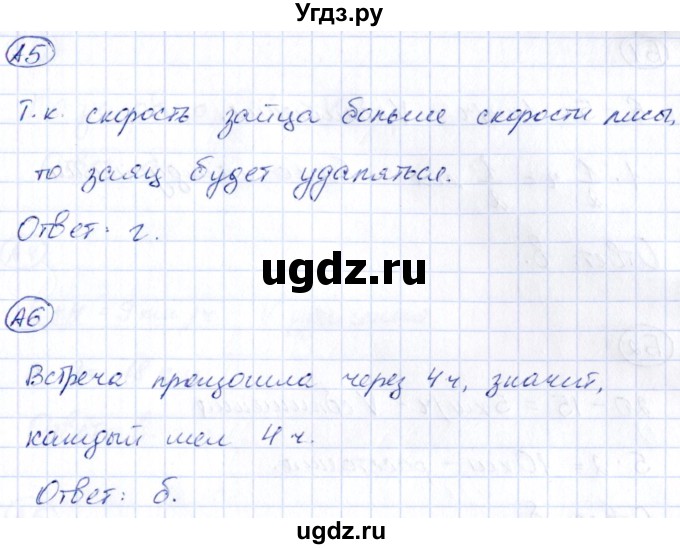 Угдз.ру
А5
Т.к. скорость зайца больше скорости лисы,
то заяц будет удаляться.
Ответ: г.
www
ugdz.ru
А6
Встреча произошла через 4ч, значит,
каждый шел 4ч.
Ответ: б.
ugdz.ru